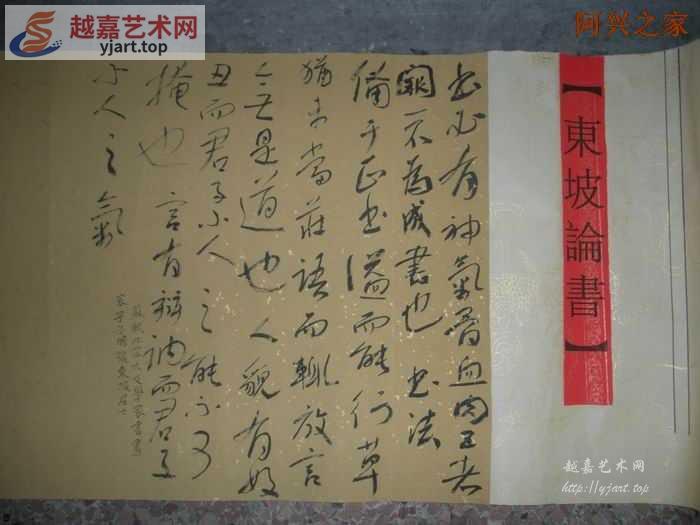 越嘉艺术网
yjart.top
阿兴之家
【東坡論書】
书必有神氣骨血肉五者
闕一不為成書也 书法
備于正书溢而能行草
猶未當莊語而輒放言
無是道也人貌有好
丑而君子小人之態不可
掩也言有辯訥而君子
小人之氣
蘇軾北宋大文學家書畫
家字子瞻號東坡居士
越嘉艺术网
http://yjart.top